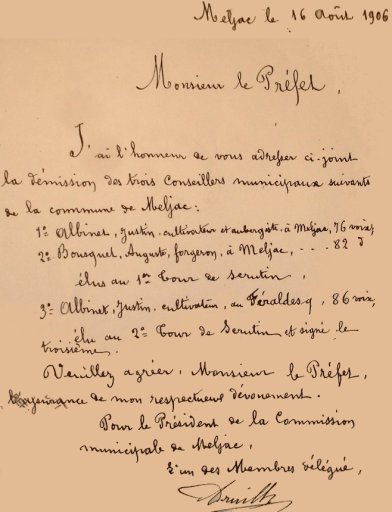 Meljac le 16 Août 1906
Monsieur le Préfet,
J'ai l'honneur de vous adresser ci-joint
la démission des trois Conseillers municipaux suivants
de la commune de Meljac :
1º Albinet, Justin, cultivateur et aubergiste, à Meljac, 76 voix;
2º Bousquet, Auguste, forgeron, à Meljac, - - - 82 d
élus au 1er Tour de scrutin,
3º Albinet, Justin, cultivateur, au Féraldesq, 86 voix,
élu au 2e Tour de Scrutin et signé le
troisième.
Veuillez agréer, Monsieur le Préfet,
l'assurance de mon respectueux dévouement.
Pour le Président de la Commission
municipale de Meljac,
L'un des Membres délégué,